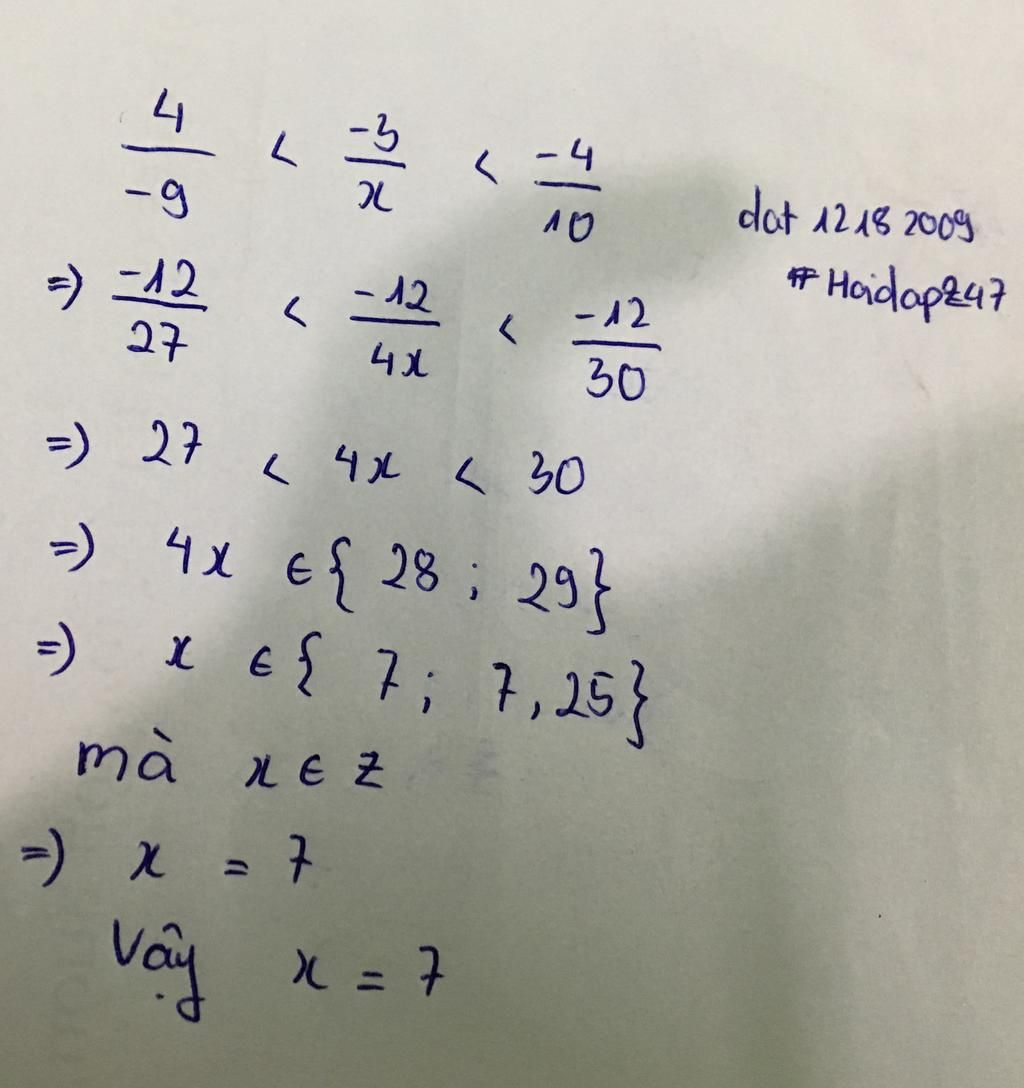 4/-9 < -3/x < -4/10
dat 1218 2009
#HoidapZ47
=) -12/27 < -12/4x < -12/30
=) 27 < 4x < 30
=) 4x ∈ { 28 ; 29}
=) x ∈ { 7 ; 7,25}
mà x ∈ Z
=) x = 7
Vậy x = 7